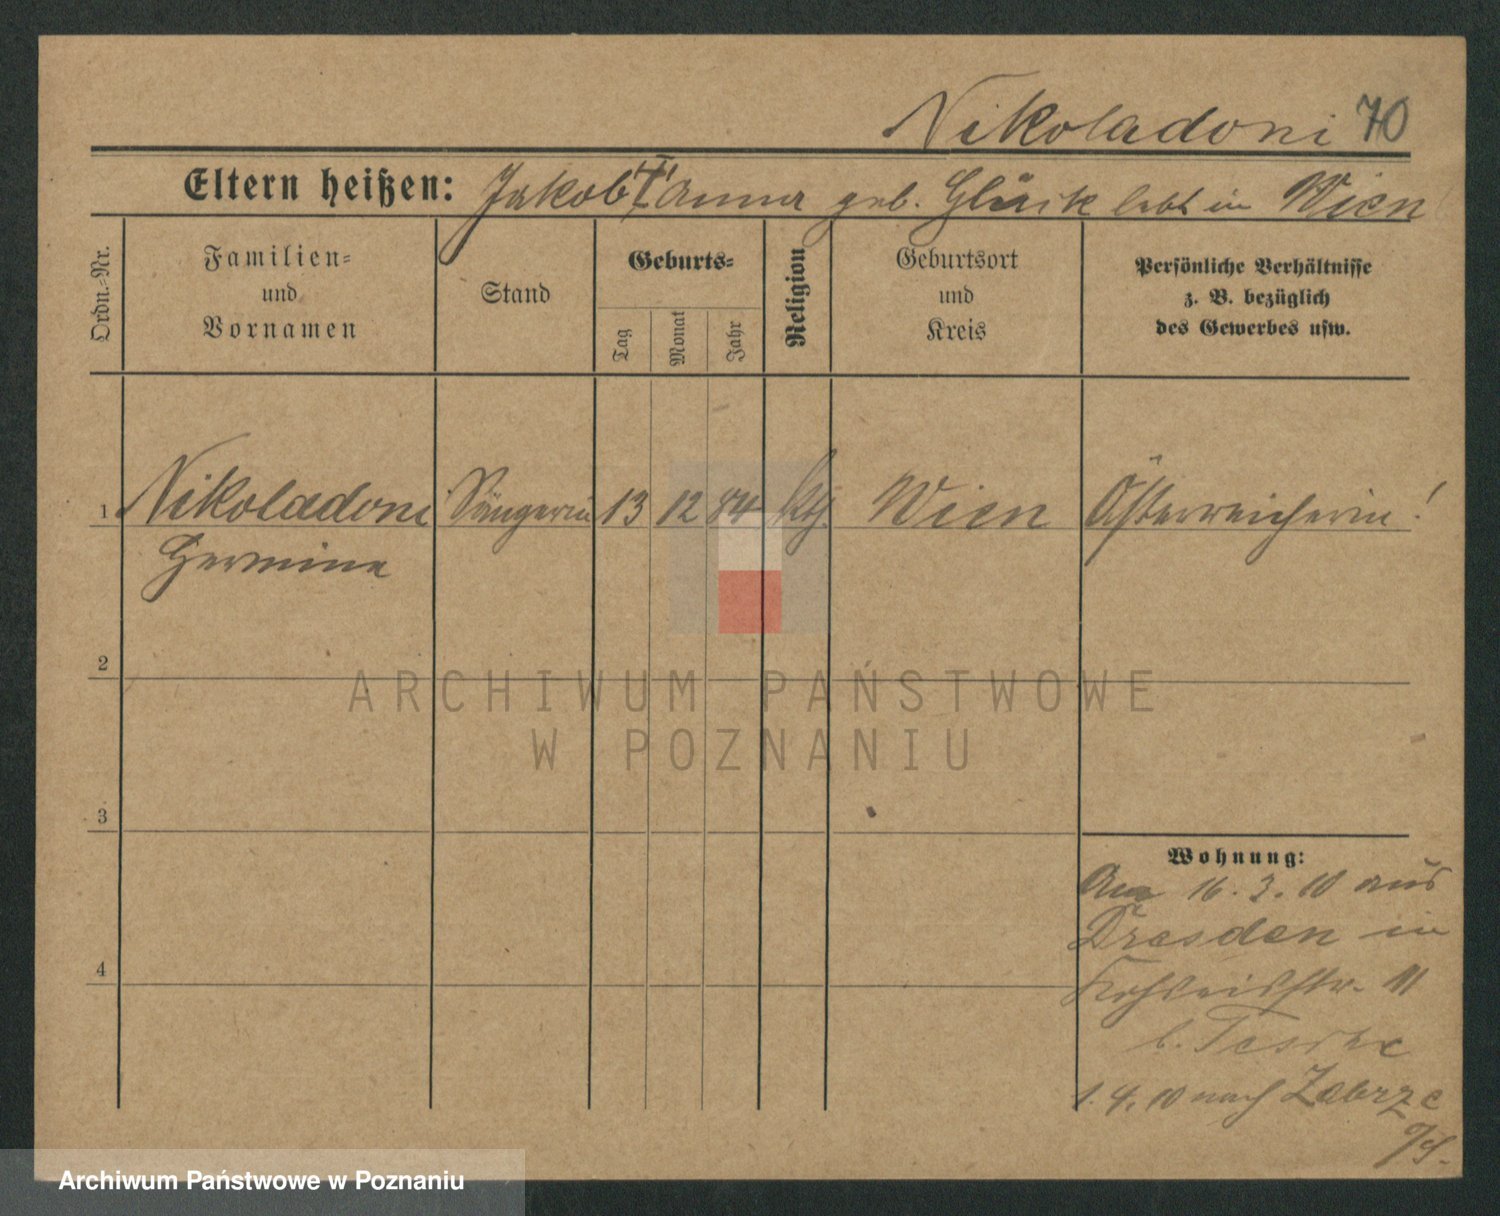 Nikoladoni 70
Eltern heißen: Jakob † Anna geb. Glück lebt in Wien
Ordn.-Nr.
Familien-
und
Vornamen
Stand
Geburts-
Tag
Monat
Jahr
Religion
Geburtsort
und
Kreis
Persönliche Verhältnisse
z. B. bezüglich
des Gewerbes usw.
1 Nikoladoni Sängerin 13 12 84 kth. Wien Österreicherin!
Hermine
2
ARCHIWUM PAŃSTWOWE
W POZNANIU
3
Wohnung:
Am 16. 3. 10 aus
Dresden in
4
b. Teske
1. 4. 10 nach Zabrze
O/S.
Archiwum Państwowe w Poznaniu